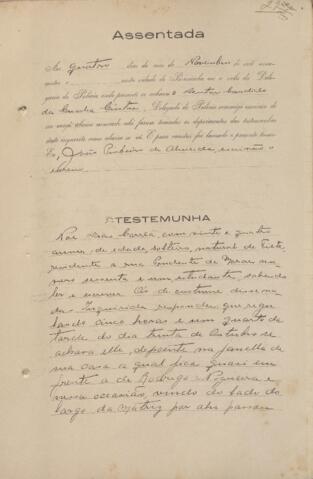 Assentada
Aos quatro dias do mez de Novembro de mil novecentos
e nesta cidade de Piracicaba em a sala da Dele-
gacia de Policia onde presente se achava o Doutor Candido
da Cunha Cintra, Delegado de Policia commigo escrivão de
seu cargo abaixo nomeado, ahi foram tomados os depoimentos das testemunhas
deste inquerito como adiante se vê. E para constar, foi lavrado o presente termo.
Eu, João Pinheiro de Almeida, escrivão o
escrevi
TESTEMUNHA
Corrêa, com vinte e quatro
annos de edade, solteiro, natural de Tietê,
residente a rua Prudente de Moraes nu-
mero sessenta e um estudante, sabendo
ler e escrever. Aos de costume disse na-
da. Inquirida respondeu que
cinco horas e um quarto da
tarde do dia trinta de Outubro se
achava elle, depoente na janella de
sua casa a qual fica quasi em
frente a de Rodrigo Nogueira e
nessa occasião, vindo do lado do
largo da Matriz por ahi passou